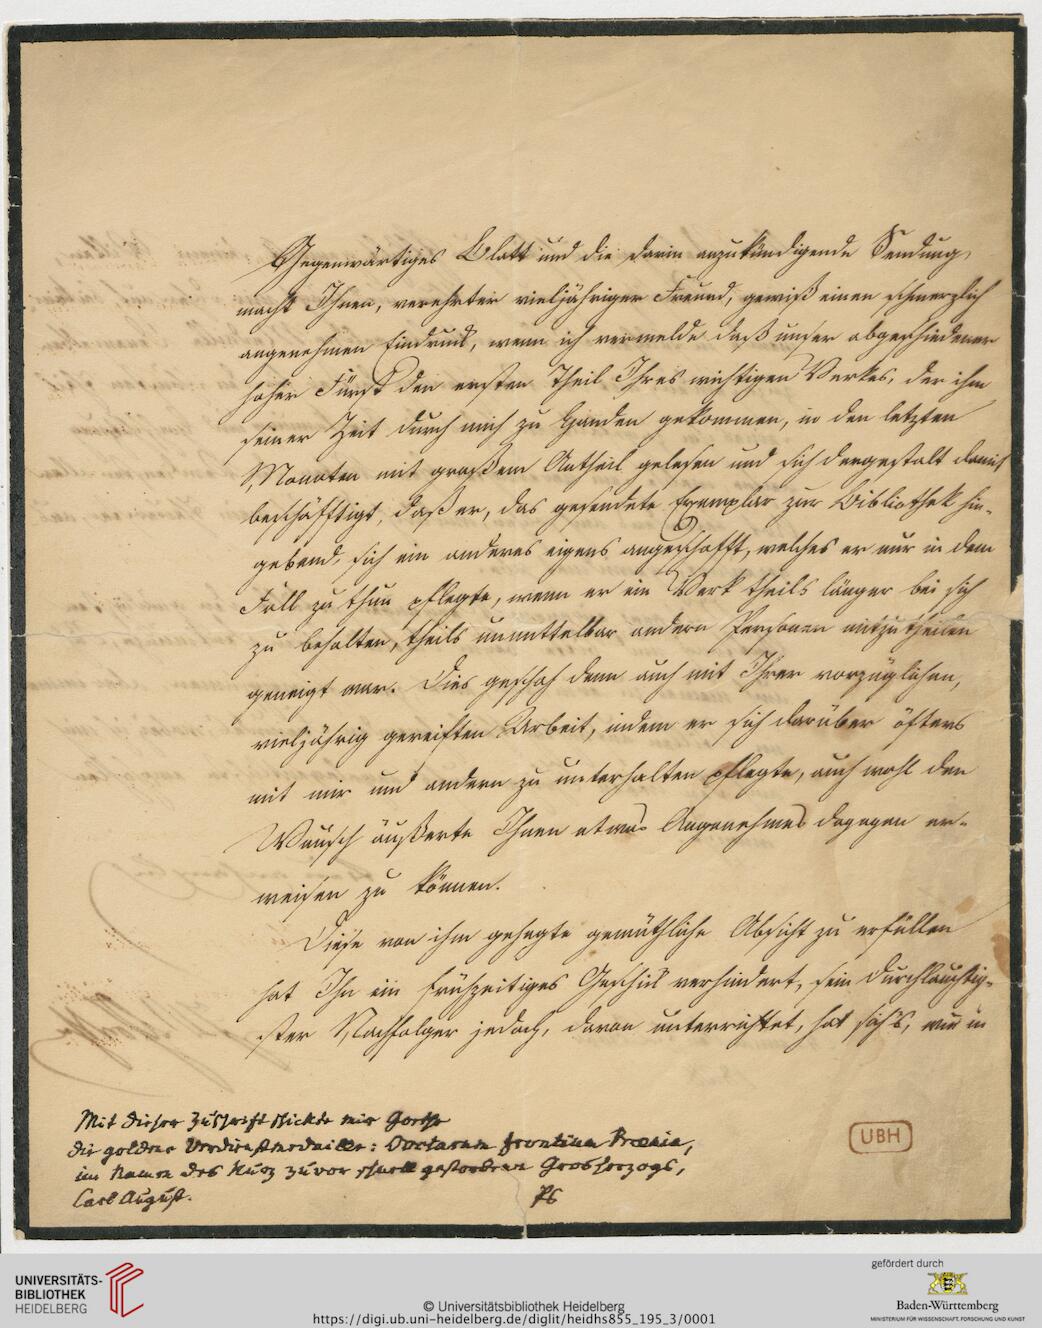 Gegenwärtiges Blatt und die darin anzukündigende Sendung
macht Ihnen, verehrter vieljähriger Freund, gewiß einen schmerzlich
angenehmen Eindruck, wenn ich vermelde daß unser abgeschiedener
hoher Fürst den ersten Theil Ihres wichtigen Werkes, der ihm
seiner Zeit durch mich zu Handen gekommen, in den letzten
Monaten mit großem Antheil gelesen und sich dergestalt damit
beschäfftigt, daß er, das gesendete Exemplar zur Bibliothek hin-
gebend, sich ein anderes eigens angeschafft, welches er nur in dem
Fall zu thun pflegte, wenn er ein Werk theils länger bei sich
zu behalten, theils unmittelbar andern Personen mitzutheilen
geneigt war. Dies geschah denn auch mit Ihrer vorzüglichen,
vieljährig gereiften Arbeit, indem er sich darüber öfters
mit mir und andern zu unterhalten pflegte, auch wohl den
Wunsch äußerte Ihnen etwas Angenehmes dagegen er-
weisen zu können.
Diese von ihm gehegte gemüthliche Absicht zu erfüllen
hat Ihn ein frühzeitiges Geschick verhindert, sein Durchlauchtig-
ster Nachfolger jedoch, davon unterrichtet, hat sich's, wie in
Mit dieser Zuschrift schickte mir Goethe
die goldene Verdienstmedaille: Doctarum frontium Praemia,
im Namen des kurz zuvor schnell gestorbenen Grosherzogs,
Carl August.
UBH
UNIVERSITÄTS-
BIBLIOTHEK
HEIDELBERG
© Universitätsbibliothek Heidelberg
https://digi.ub.uni-heidelberg.de/diglit/heidhs855_195_3/0001
gefördert durch
Baden-Württemberg
MINISTERIUM FÜR WISSENSCHAFT, FORSCHUNG UND KUNST